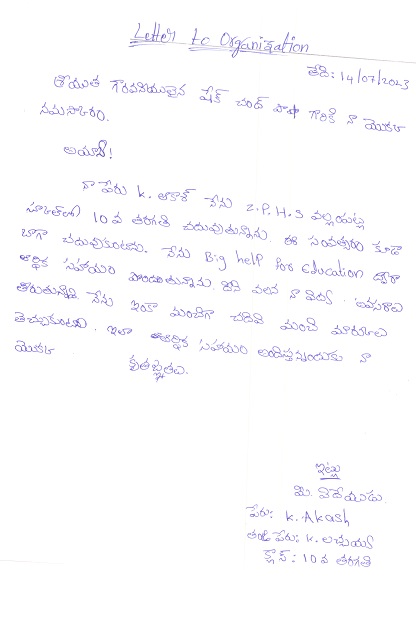 Letter to Organization
తేది: 14/07/2023
గౌరవనీయులైన షేక్ చాంద్ పాషా గారికి నా యొక్క
నమస్కారం.
అయ్యా!
నా పేరు K. ఆకాశ్ నేను Z.P.H.S
10వ తరగతి చదువుతున్నాను. ఈ సంవత్సరం కూడా
బాగా చదువుకుంటాను. నేను Big help for Education ద్వారా
ఆర్థిక సహాయం పొందుతున్నాను. దీని వలన నా విద్య అవసరాలు
తీరుతున్నవి. నేను ఇంకా మంచిగా చదివి మంచి మార్కులు
తెచ్చుకుంటాను. ఇలా ఆర్థిక సహాయం అందిస్తున్నందుకు నా
యొక్క కృతజ్ఞతలు.
ఇట్లు
మీ విధేయుడు.
పేరు: K. Akash
తండ్రి పేరు: K.
క్లాస్: 10వ తరగతి